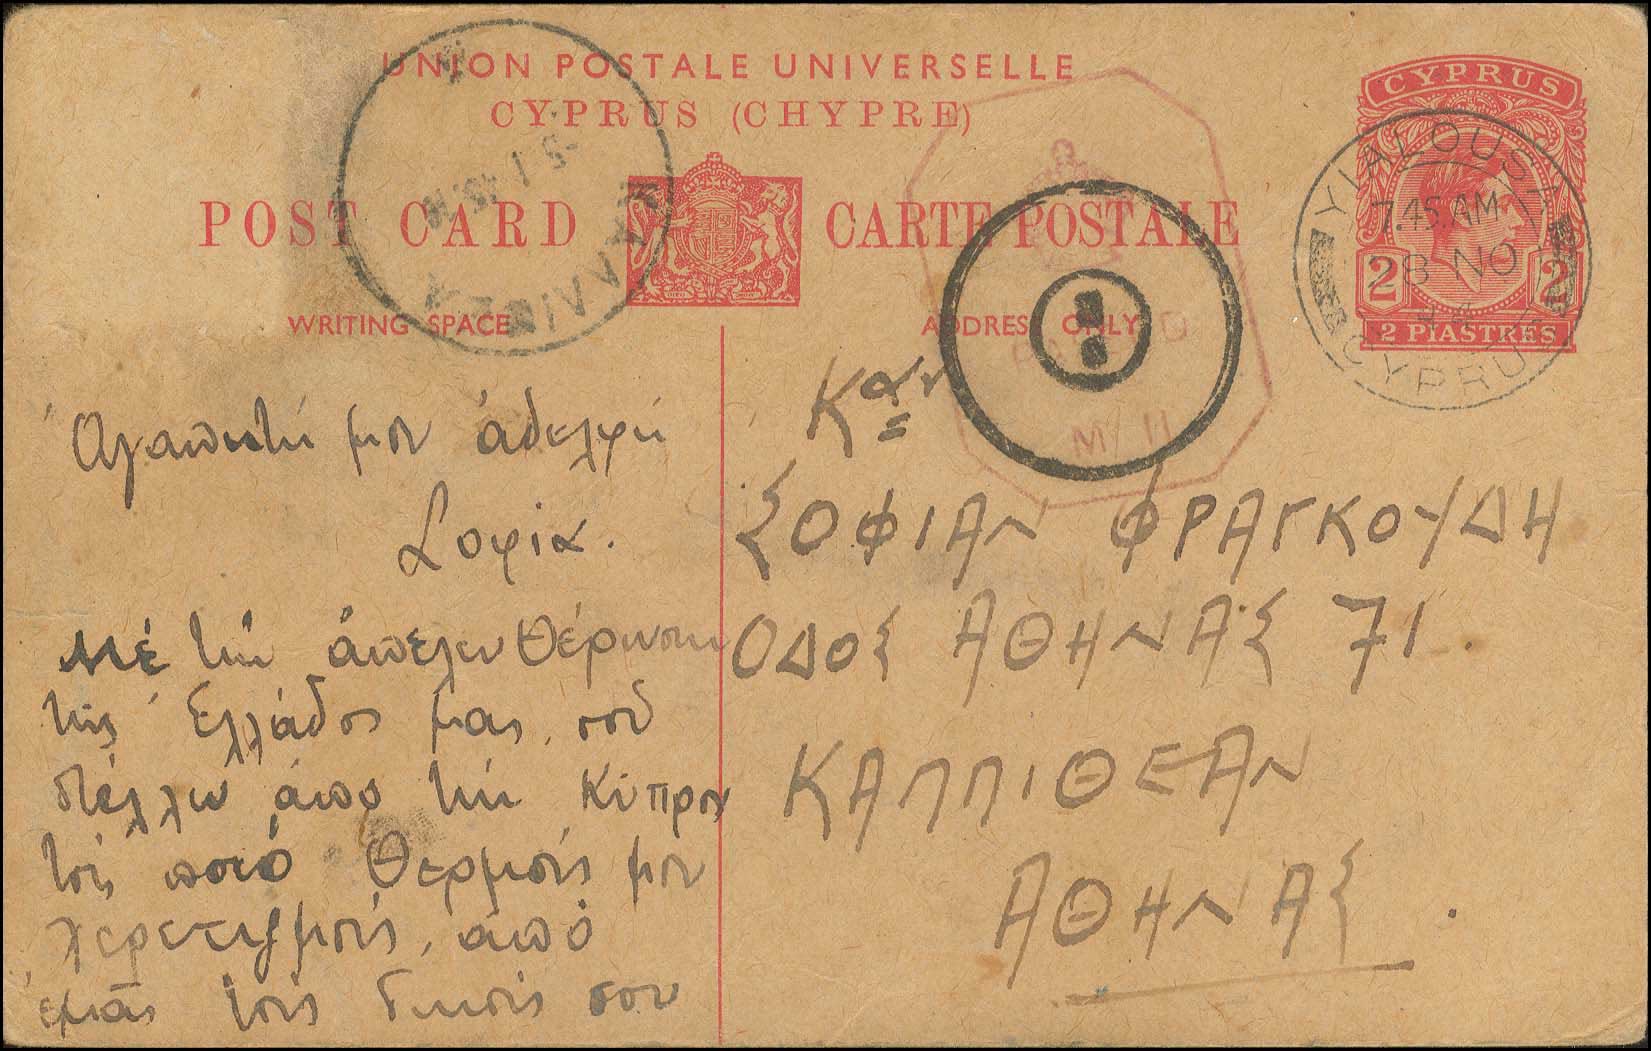 UNION POSTALE UNIVERSELLE
CYPRUS (CHYPRE)
POST CARD CARTE POSTALE
WRITING SPACE
ADDRESS ONLY
CYPRUS
2 2
2 PIASTRES
YIALOUSA
7.45.AM
8 NO
CYPRUS
M/11
Ἀγαπητή μου ἀδελφή
Σοφία.
Μέ τήν ἀπελευθέρωσιν
τῆς Ἑλλάδος μας, σοῦ
στέλλω ἀπό τήν Κύπρον
τούς ποιό θερμούς μου
χερετισμούς, ἀπό
ἐμᾶς τούς δικούς σου
Καν
ΣΟΦΙΑΝ ΦΡΑΓΚΟΥΔΗ
ΟΔΟΣ ΑΘΗΝΑΣ 71.
ΚΑΠΠΙΘΕΑΝ
ΑΘΗΝΑΣ.